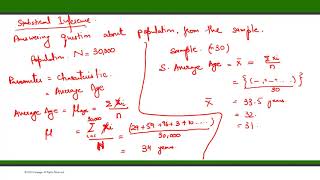 Statistical Inference:
Answering question about population, from the sample.
Population N = 30,000
Parameter = Characteristic
= Average Age
Average Age = μage = Σxi / n
μ = Σxi / N = (24+54+96+3+10.....) / 30,000
= 34 years
Sample (30)
S. Average Age = x̄ = Σxi / n
30
x̄ = 33.5 years
= 32.
= 31.